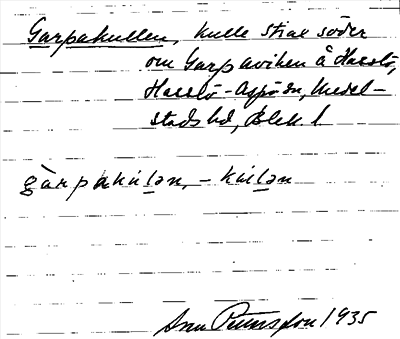 Garpakullen, kulle strax söder
om Garpaviken å Hasslö,
Hasslö-Aspön, Medel-
stads hd, Blek l
gàrpakúlən, -kùlən
1935